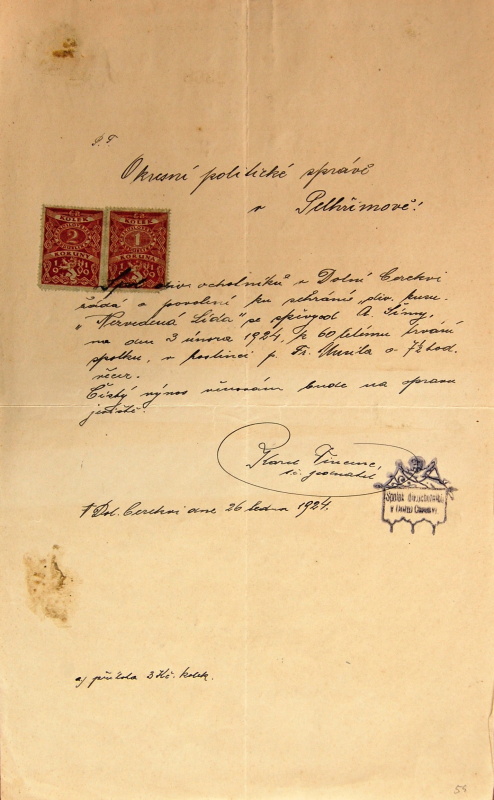 P. T.
Okresní politické správě
v Pelhřimově!
KOLEK
KOLEK
2
1
KORUNY
KORUNA
Spol. div. ochotníků v Dolní Cerekvi
žádá o povolení ku sehrání div. kusu
"Nezvedená Lída" se zpěvy od A.
na den 3 února 1924, k 60 letému trvání
spolku, v hostinci p. Fr. o 7½ hod.
večer.
Čistý výnos věnován bude na opravu
jeviště.
Karel
t. č. jednatel
Spolek divad. ochotníků
v Dolní Cerekvi
V Dol. Cerekvi dne 26 ledna 1924.
a/ příloha 3 Kč. kolek.
59